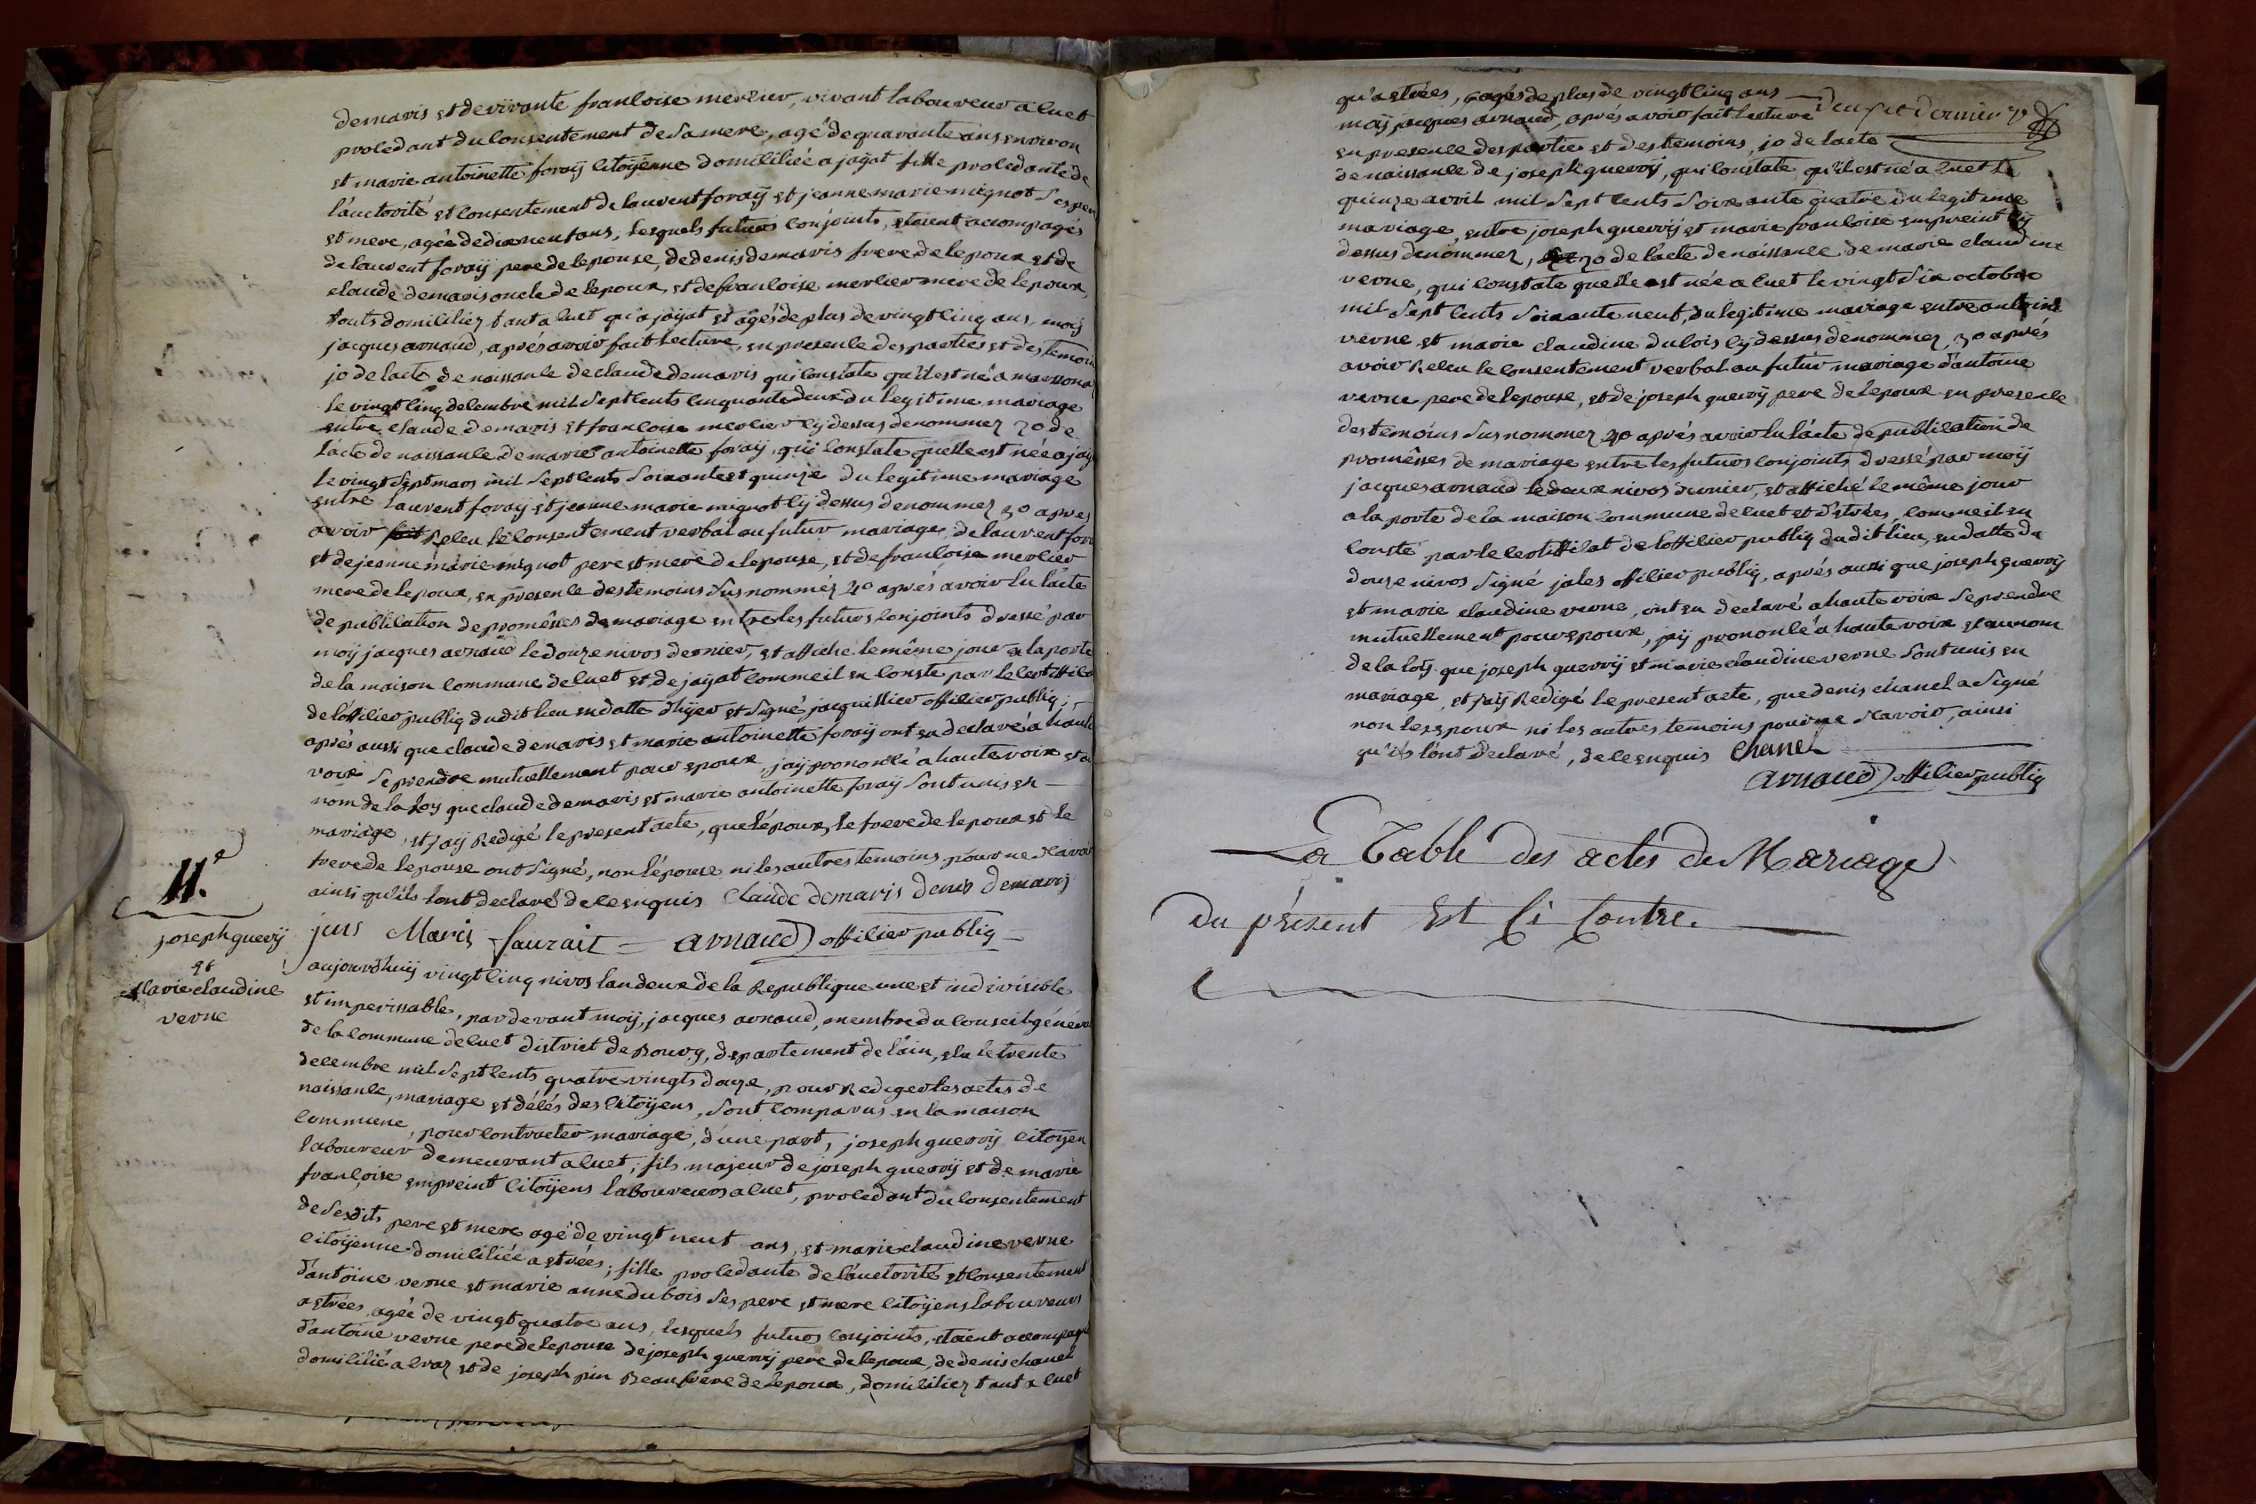 demaris et de vivante franÇoise merlier, vivant laboureur a Cuet
proCedant du Consentement de sa mere, agé de quarante ans environ
et marie antoinette foraÿ Citoÿenne domiCiliée a jaÿat fille proCedante de
l'auctorité et Consentement de laurent foraÿ et jeanne marie mignot Ses pere
et mere, agée de dixneuf ans, lesquels futurs Conjoints, etoient acompagés
de laurent foraÿ pere de lepouse, de denis demaris frere de lepoux et de
Claude demaris oncle de lepoux, et de franÇoise merlier mere de lepoux,
touts domiCiliez tant a Cuet qu'a jaÿat et agés de plus de vingt Cinq ans, moÿ
jacques arnaud, aprés avoir fait lecture, en presenCe des parties et des temoins
1o de lacte de naissanCe de Claude demaris qui Constate qu'il est né a
le vingt Cinq deCembre mil Sept Cents Cinquante deux du legitime mariage
entre Claude demaris et franÇoise merlier Cÿ dessus denommez 2o de
l'acte de naissanCe de marie antoinette foraÿ, qui Constate quelle est née a jaÿat
le vingt Sept mars mil Sept Cents Soixante et quinze du legitime mariage
entre laurent foraÿ et jeanne marie mignot Cÿ dessus denommez 3o aprés
avoir Releu le Consentement verbal au futur mariage de laurent foraÿ
et de jeanne marie mignot pere et mere de lepouse, et de franÇoise merlier
mere de lepoux, en presenCe des temoins Sus nommés 4o aprés avoir lu lacte
de publiCation de promésses de mariage entre les futurs Conjoints dressé par
moÿ jacques arnaud le douze nivos dernier, et affiché le même jour a la porte
de la maison Commune de Cuet et de jaÿat Comme il en Conste par le CertiffiCat
de loffiCier publiq dudit lieu en datte d'hÿer et Signé jacquillier offiCier publiq,
aprés aussi que Claude demaris et marie antoinette foraÿ ont eu declaré a haute
voix Se prendre mutuellement pour epoux, jaÿ prononCé a haute voix et au
nom de la loÿ que Claude demaris et marie antoinette foraÿ Sont unis en
mariage, et jaÿ Redigé le present acte, que lépoux, le frere de lepoux et le
frere de lepouse ont Signé, non lépouse ni les autres temoins pour ne Savoir
ainsi qu'ils lont declaré de Ce enquis Claude demaris denis demaris
juis Maris Sauzait = arnaud offiCier publiq
11.e
joseph guerrÿ
et
Marie Claudine
verne
aujourd'huÿ vingt Cinq nivos lan deux de la Republique une et indivisible
et imperissable, pardevant moÿ, jacques arnaud, membre du Conseil géneral
de la Commune de Cuet district de Bourg, departement de lain, elu le trente
decembre mil Sept Cents quatre vingts douze, pour Rediger les actes de
naissanCe, mariage et décés des Citoÿens, Sont Comparus en la maison
Commune, pour Contracter mariage, d'une part, joseph guerrÿ Citoÿen
laboureur demeurant a Cuet, fils majeur de joseph guerrÿ et de marie
franÇoise empreint Citoÿens laboureurs a Cuet, proCedant du Consentement
de Sesdits pere et mere agé de vingt neuf ans, et marie Claudine verne
Citoÿenne domiCiliée a etrées, fille proCedante de l'auctorité et Consentement
d'antoine verne et marie anne dubois Ses pere et mere Citoÿens laboureurs
a etrées, agée de vingt quatre ans, lesquels futurs Conjoints, etoient acompagés
d'antoine verne pere de lepouse de joseph guerrÿ pere de lepoux, de denis chanel
domiCilié a Cras et de joseph pin Beaufrere de lepoux, domiCiliez tant a Cuet
qu'a etrées, et agés de plus de vingt Cinq ans
moÿ jacques arnaud, aprés avoir fait lecture
Deuse et dernier
en presenCe des parties et des temoins, 1o de lacte
de naissanCe de joseph guerrÿ, qui Constate qu'il est né a Cuet le
quinze avril mil Sept Cents Soixante quatre du legitime
mariage, entre joseph guerrÿ et marie franÇoise empreint Cÿ
dessus denommez, 2o de lacte de naissanCe de marie Claudine
verne, qui Constate quelle est née a Cuet le vingt Six octobre
mil Sept Cents Soixante neuf, du legitime mariage entre antoine
verne et marie Claudine dubois Cÿ dessus denommez, 3o aprés
avoir Releu le Consentement verbal au futur mariage d'antoine
verne pere de lepouse, et de joseph guerrÿ pere de lepoux en presenCe
des temoins Sus nommez 4o aprés avoir lu lácte de publiCation de
promésses de mariage entre les futurs Conjoints dressé par moÿ
jacques arnaud le deux nivos dernier, et affiché le même jour
a la porte de la maison Commune de Cuet et d'etrées, Comme il en
Conste par le CertiffiCat de loffiCier publiq dudit lieu, en datte du
douze nivos Signé jales offiCier publiq, aprés aussi que joseph guerrÿ
et marie Claudine verne, ont eu declaré a haute voix Se prendre
mutuellement pour epoux, jaÿ prononCé a haute voix et au nom
de la loÿ que joseph guerrÿ et marie Claudine verne Sont unis en
mariage, et jaÿ Redigé le present acte, que denis chanel a Signé
non les epoux ni les autres temoins pour ne Savoir, ainsi
qu'ils lónt declaré, de Ce enquis Chanel
arnaud offiCier publiq
La Table des actes de Mariage
du présent Est Ci Contre.